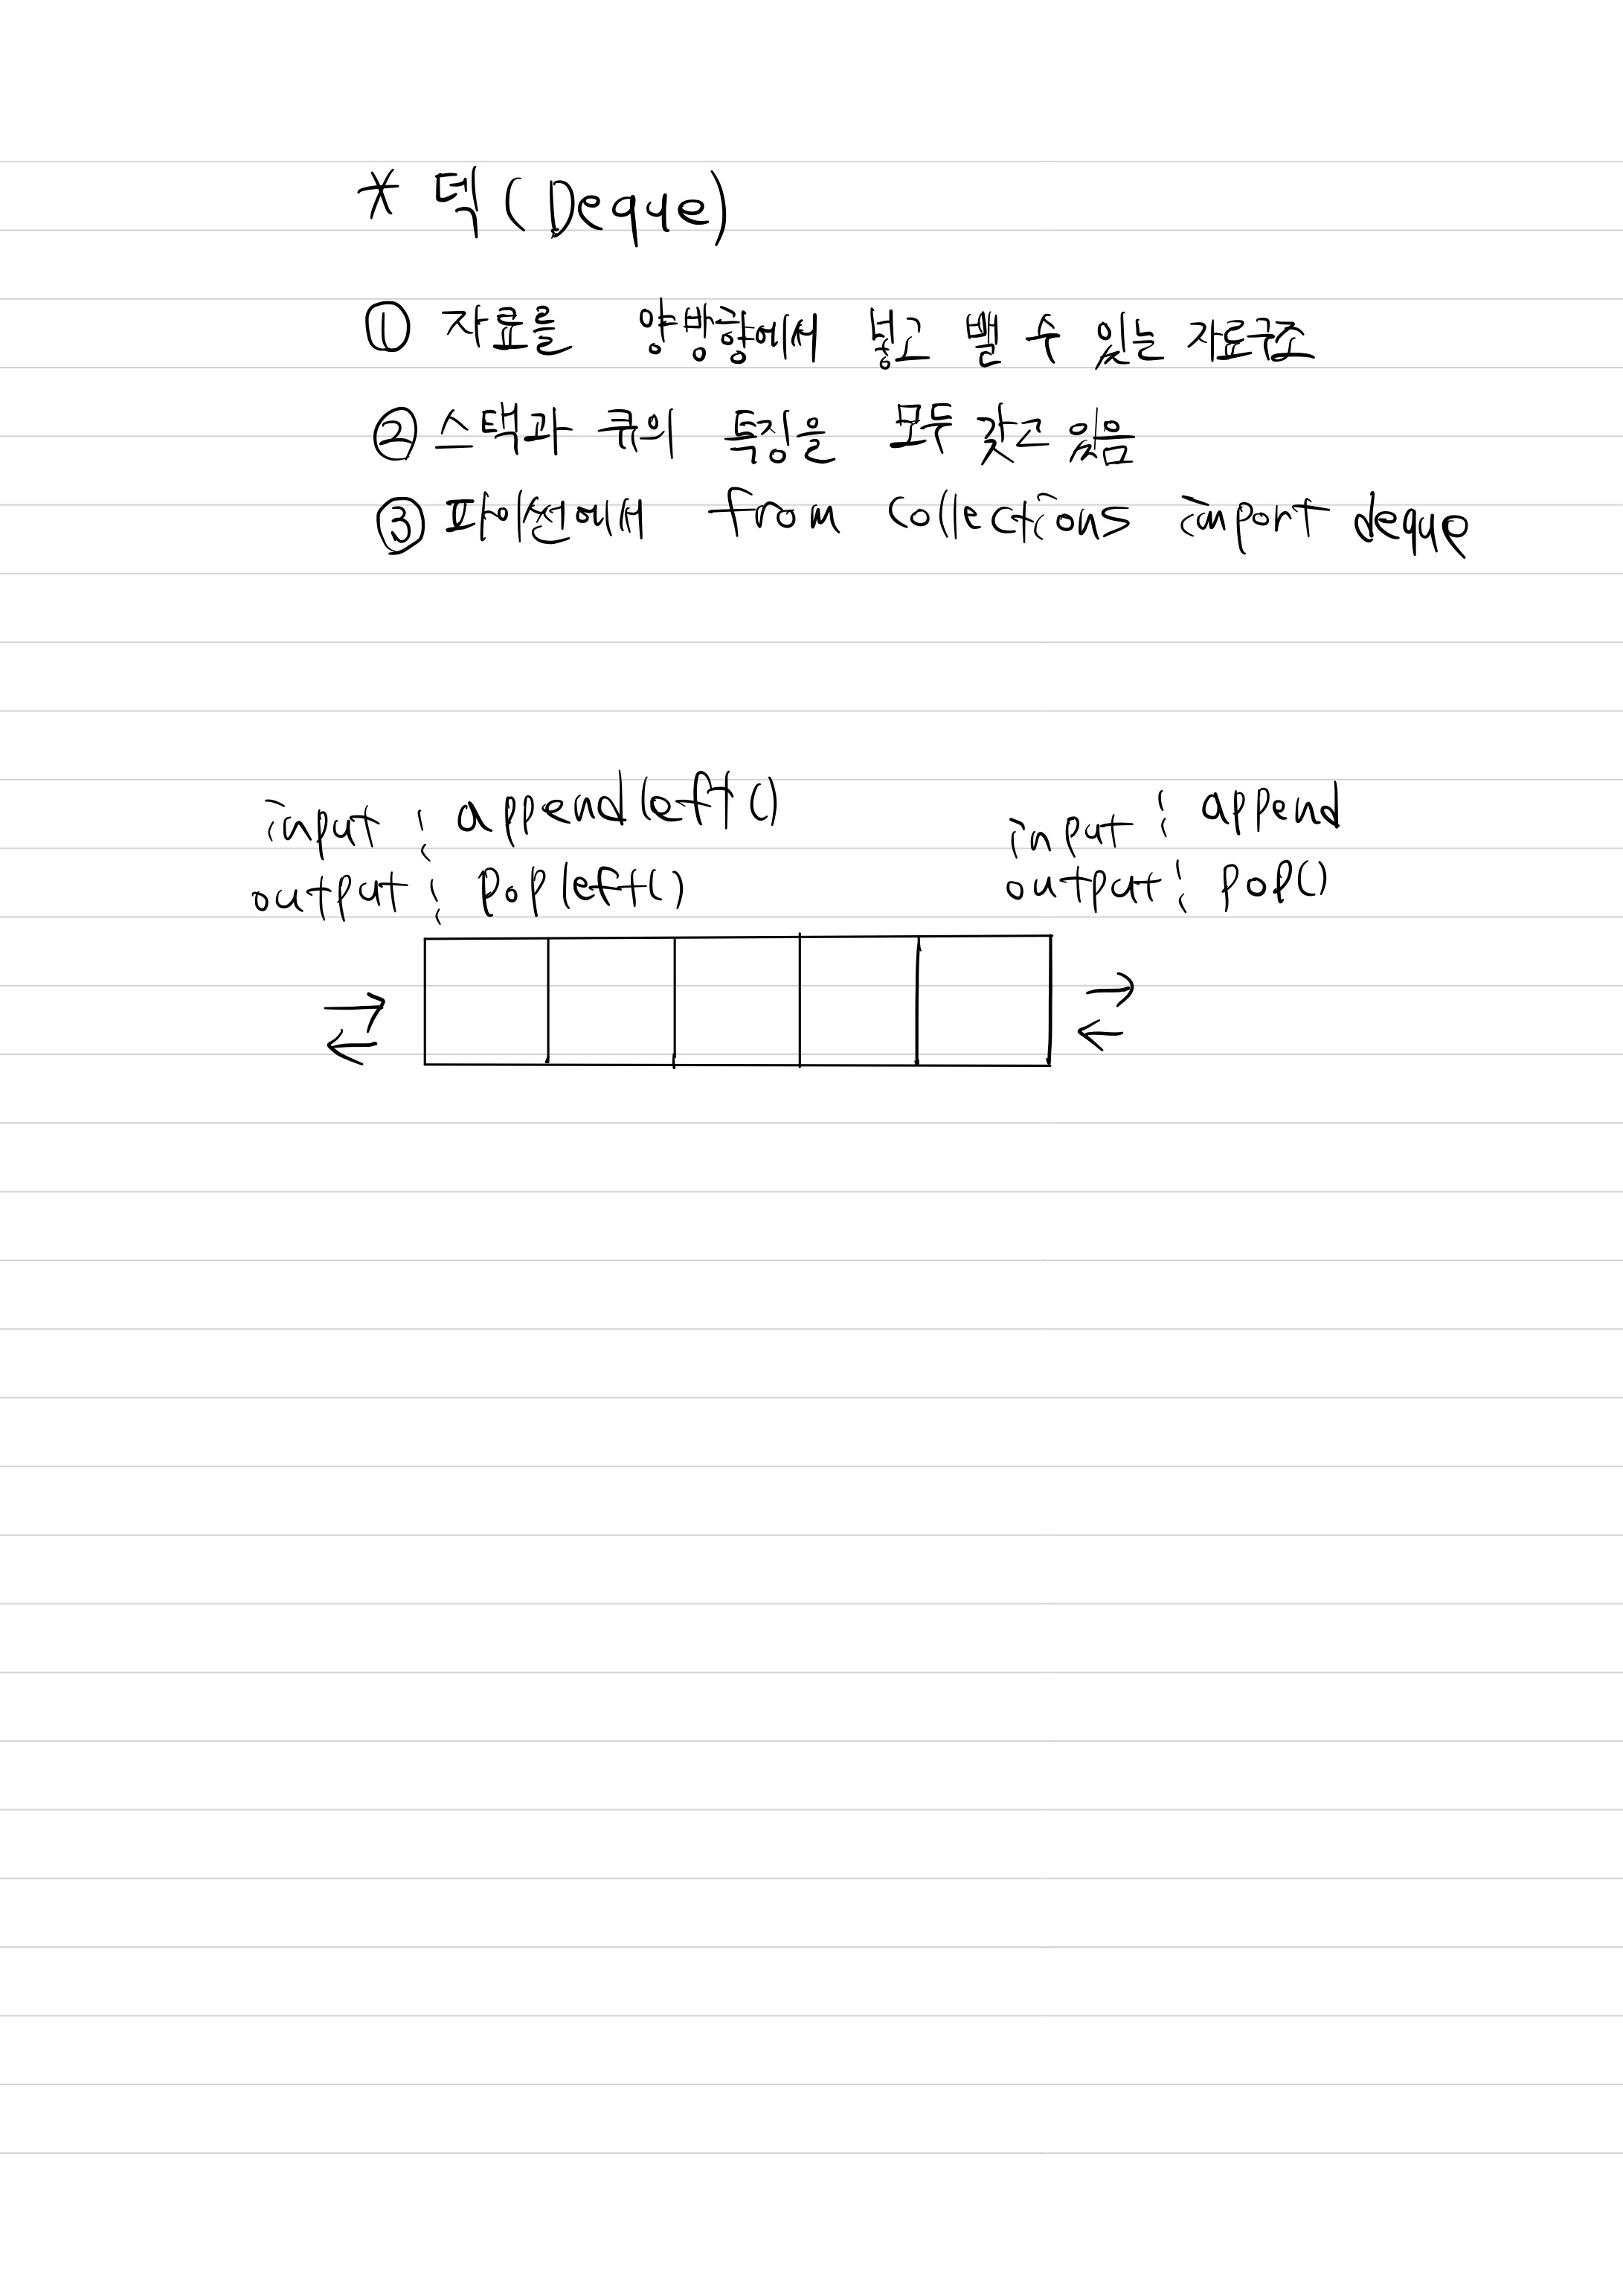 * 덱 (Deque)
① 자료를 양방향에서 넣고 뺄 수 있는 자료구조
② 스택과 큐의 특징을 모두 갖고 있음
③ 파이썬에서 from collections import deque
input : appendleft()
output : popleft()
input : append
output : pop()